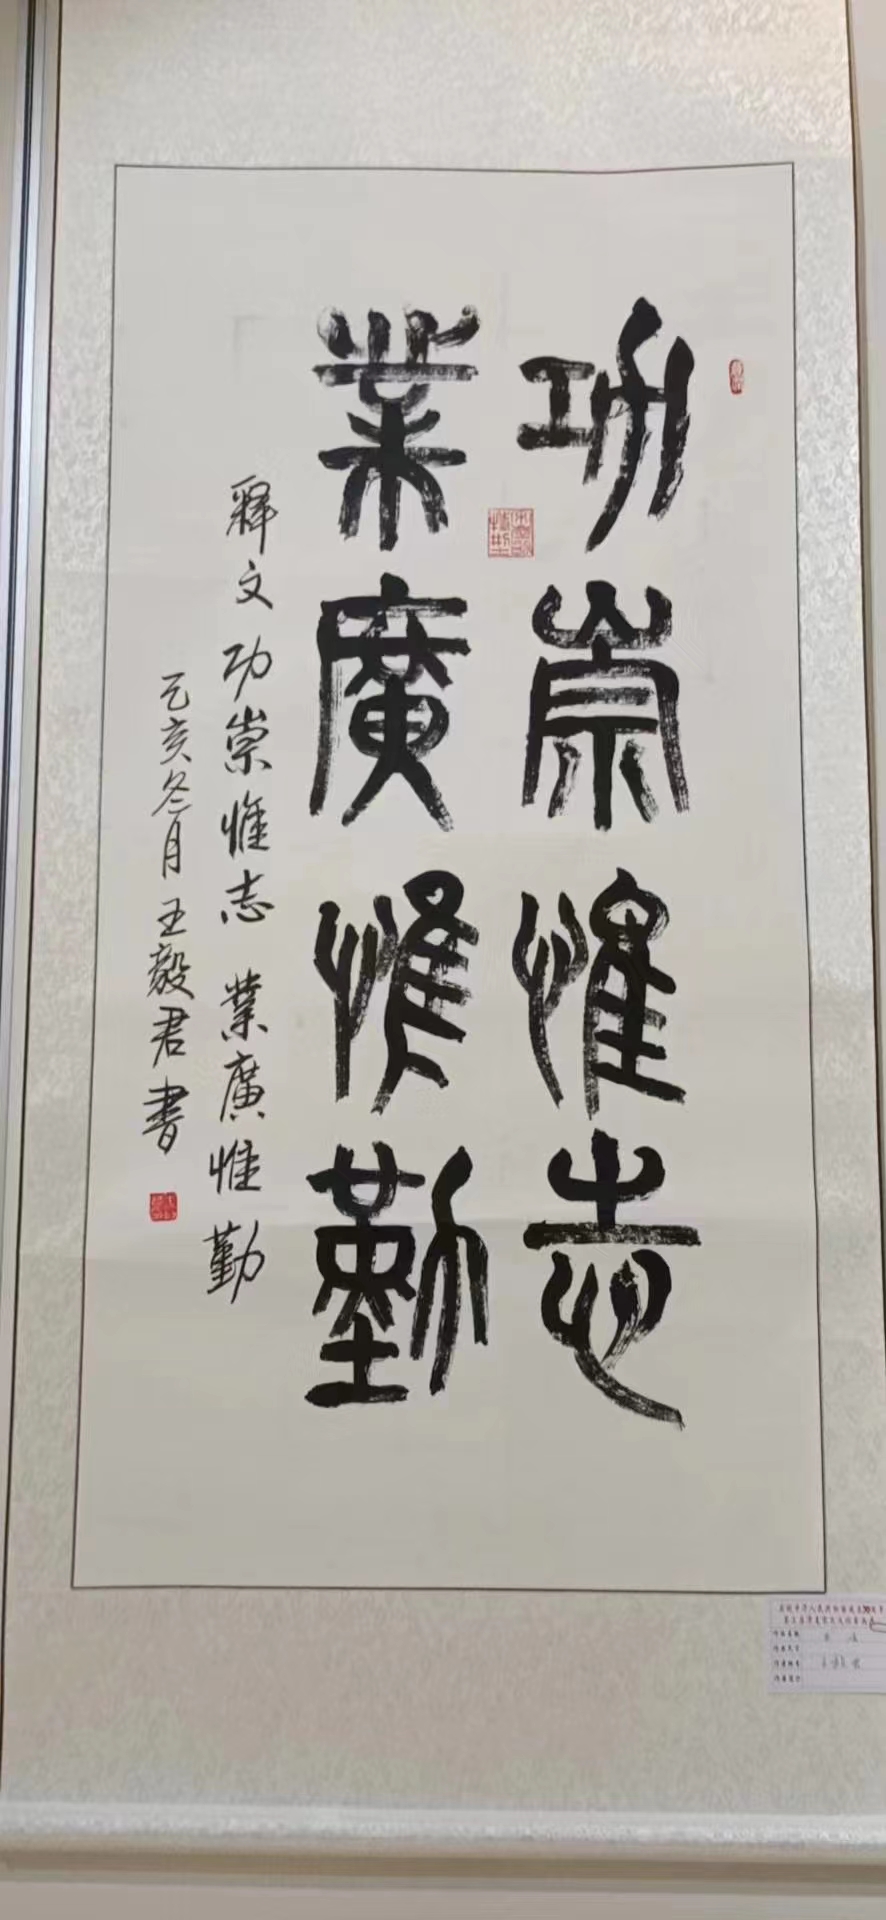 功崇惟志
業廣惟勤
釋文功崇惟志 業廣惟勤
乙亥冬月王毅君書